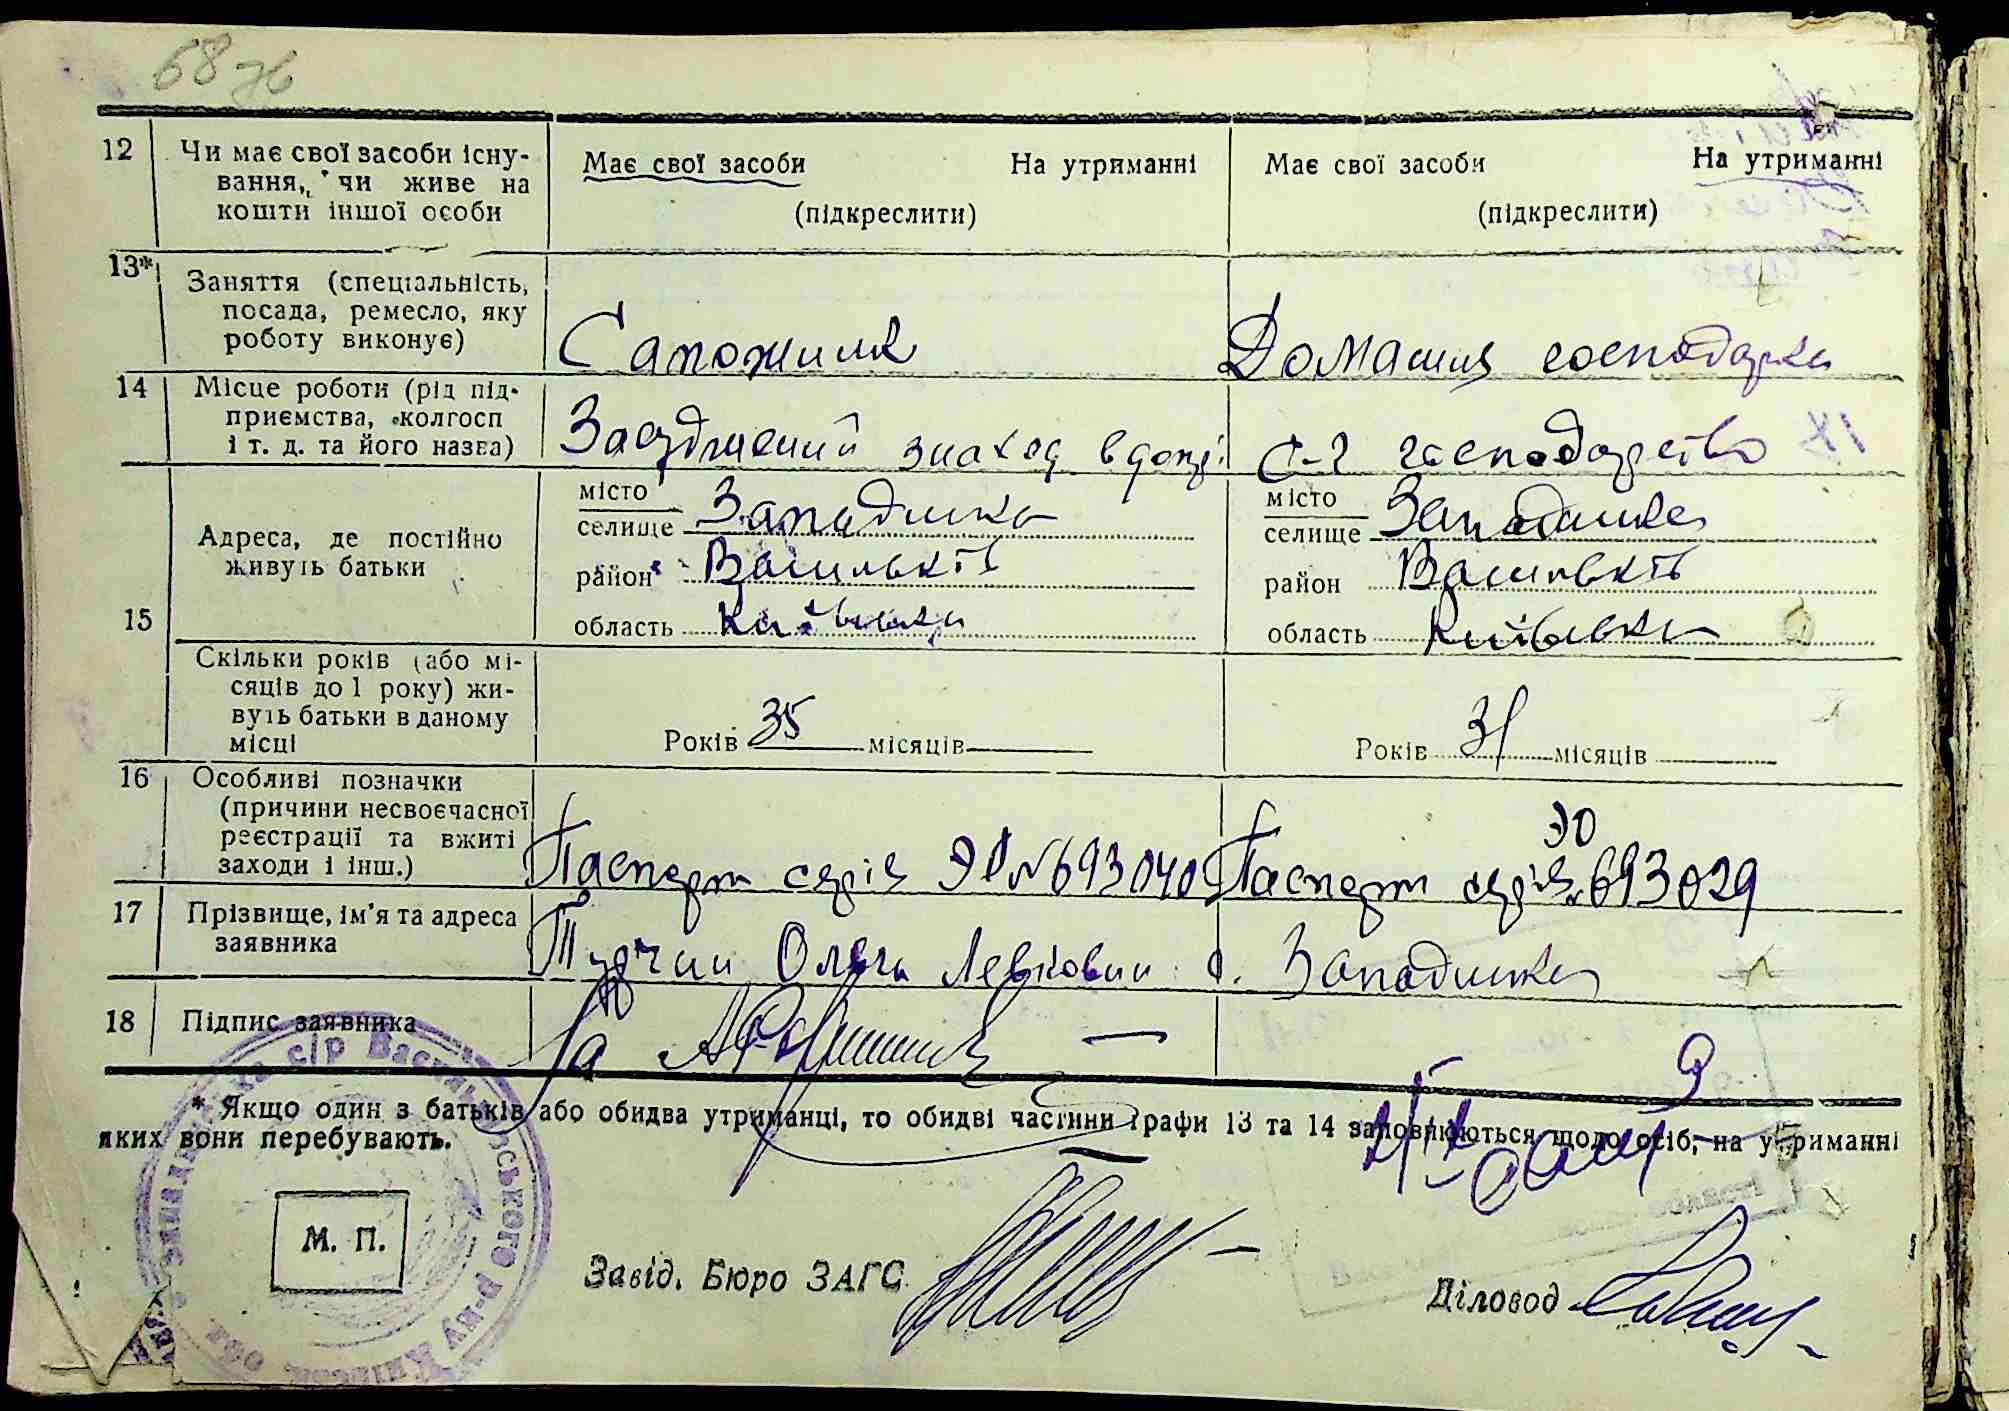 68 зв
12 Чи має свої засоби існу-
вання, чи живе на
кошти іншої особи
Має свої засоби На утриманні
(підкреслити)
Має свої засоби На утриманні
(підкреслити)
13* Заняття (спеціальність,
посада, ремесло, яку
роботу виконує)
Сапожник
Домашня господарка
14 Місце роботи (рід під-
приємства, колгосп
і т. д. та його назва)
в дома
с-г господарство
15 Адреса, де постійно
живуть батьки
місто
селище Западинка
район Васильків
область Київська
місто
селище Западинка
район Васильків
область Київська
Скільки років (або мі-
сяців до 1 року) жи-
вуть батьки в даному
місці
Років 35 місяців
Років 31 місяців
16 Особливі позначки
(причини несвоєчасної
реєстрації та вжиті
заходи і інш.)
Паспорт серія № 693040
Паспорт серія ЭЮ № 693029
17 Прізвище, ім'я та адреса
заявника
Ольга с. Западинка
18 Підпис заявника
За
* Якщо один з батьків або обидва утриманці, то обидві частини графи 13 та 14 заповнюються щодо осіб, на утриманні
яких вони перебувають.
с/р Васильківського р-ну Київськ. обл.
М. П.
Завід. Бюро ЗАГС
Діловод